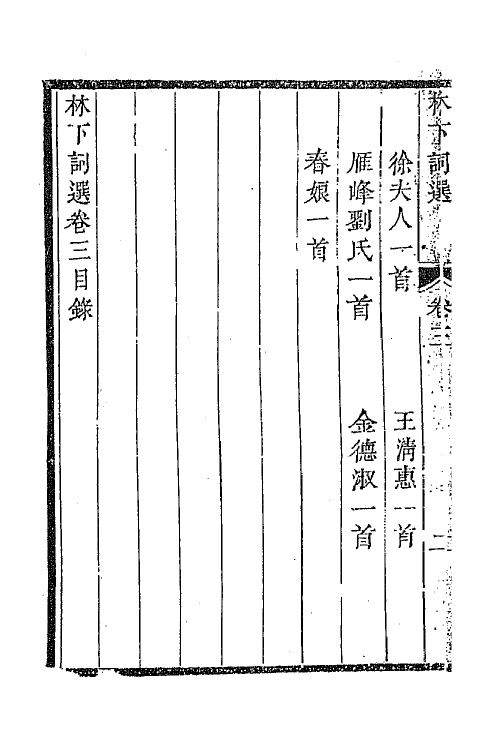 林下詞選 卷三 二
徐夫人一首 王淸惠一首
雁峰劉氏一首 金德淑一首
春娘一首
林下詞選卷三目錄